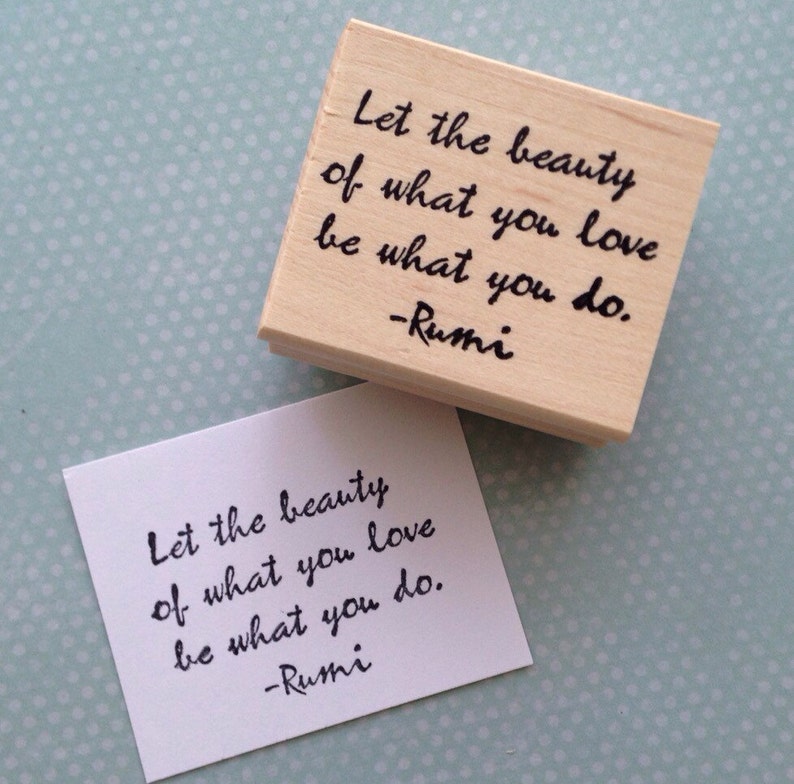 Let the beauty
of what you love
be what you do.
-Rumi
Let the beauty
of what you love
be what you do.
-Rumi